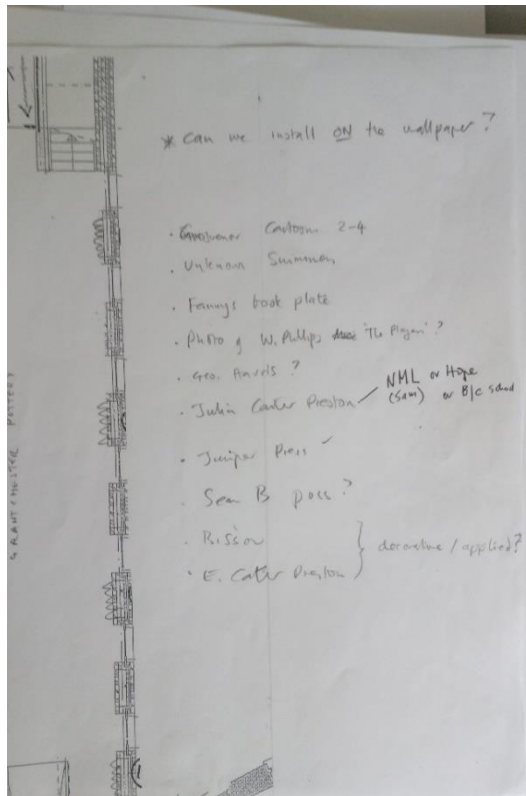 * Can we install ON the wallpaper?
Cartoon 2-4
Unknown
· Fannys book plate
· Photo of W. Phillips 'The Players'?
· Geo. ?
· Julia Carter Preston
NML or Hope
(Sam) or B/c
· Juniper Press ✓
· Sean B poss?
· Bisson
· E. Carter Preston
decorative / applied?